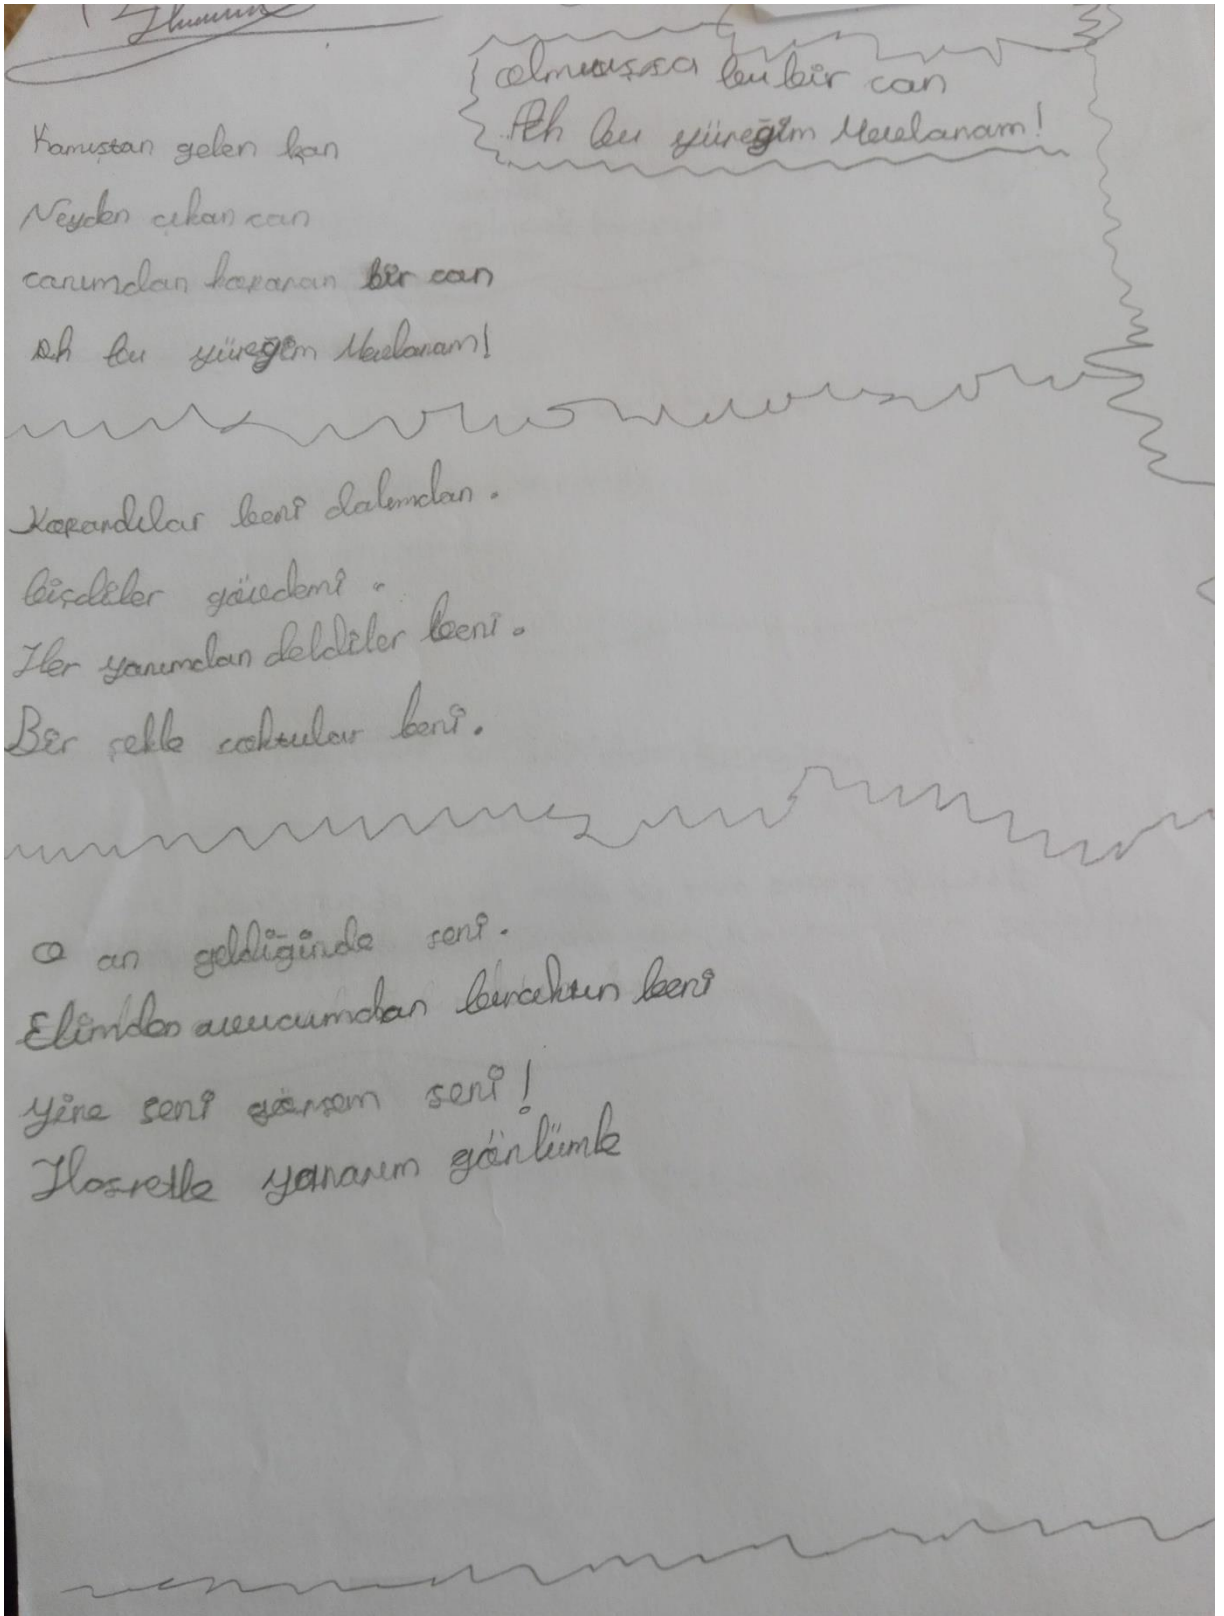 olmuşsa bu bir can
Ah bu yüreğim Mevlanam!
Kamıştan gelen kan
Neyden çıkan can
canımdan kopanan bir can
Ah bu yüreğim Mevlanam!
Kopardılar beni dalımdan.
biçdiler gövdemi.
Her yanımdan deldiler beni.
Bir şekle soktular beni.
O an geldiğinde seni.
Elimden avucumdan bıraktın beni
Yine seni görsem seni!
Hasretle yanarım gönlümle